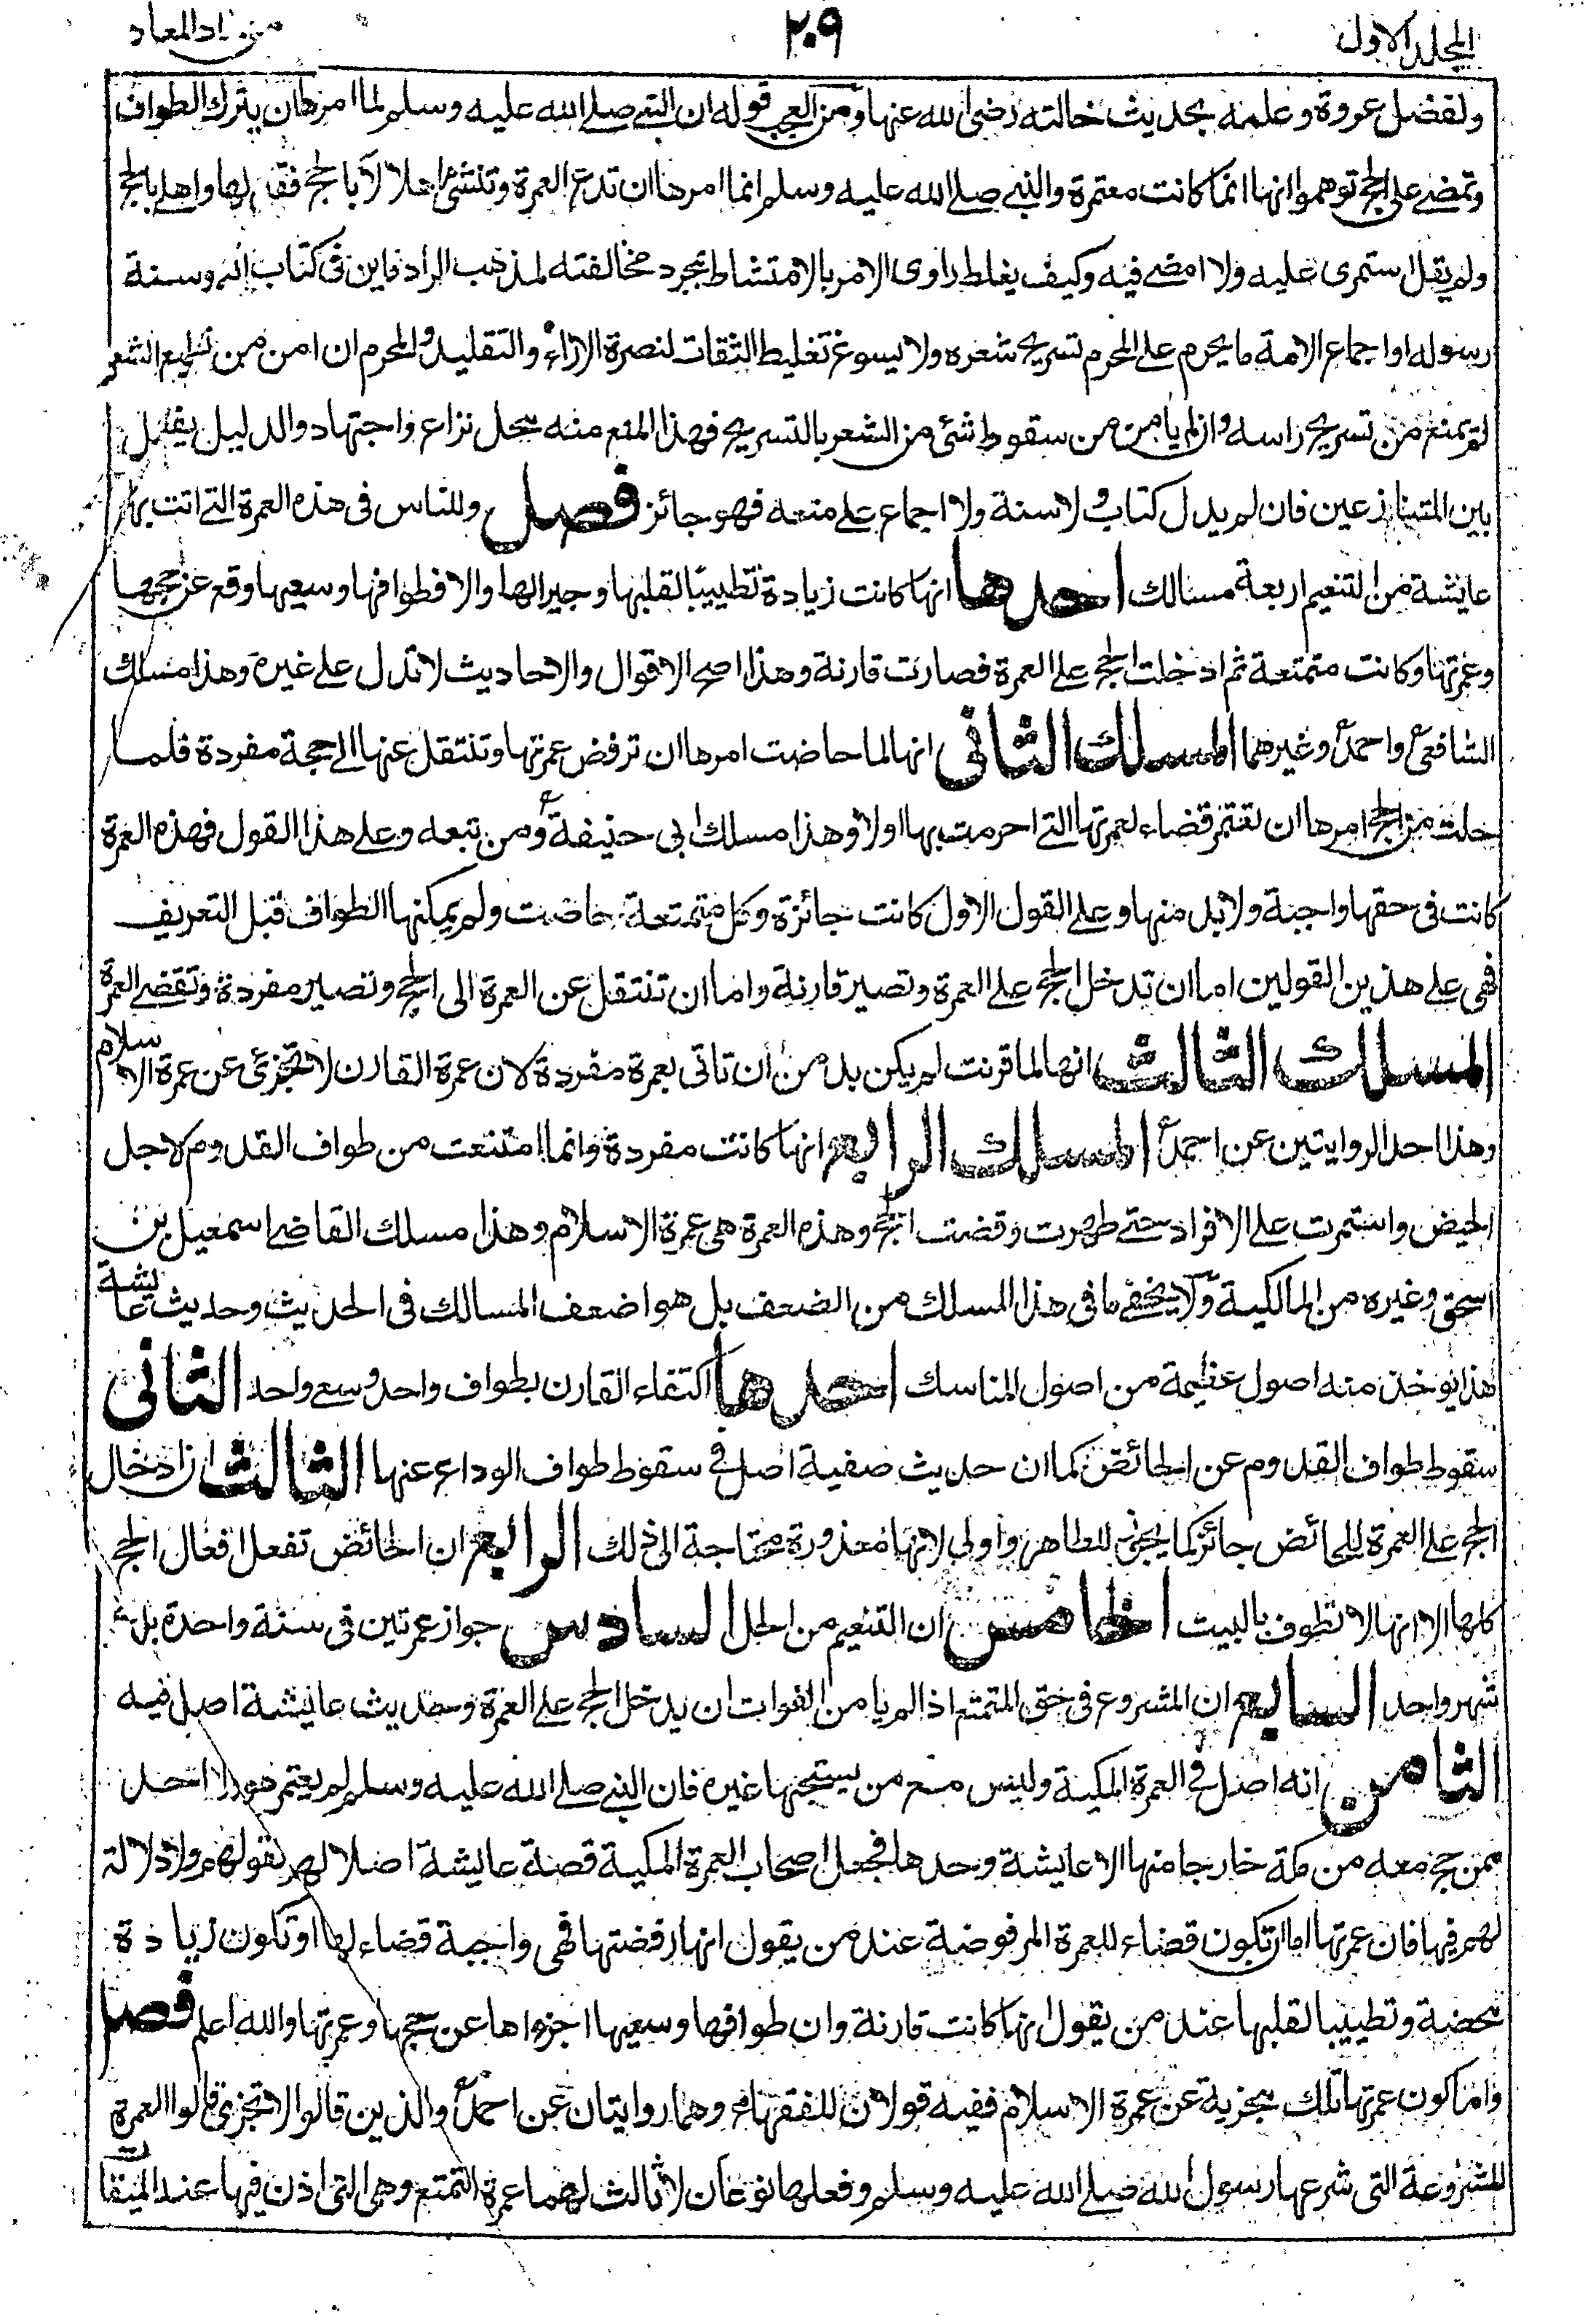 المجلد الاول
٢٠٩
من زاد المعاد
ولفضل عروة وعلمه بحديث خالته رضى الله عنها ومن العجب قوله ان النبي صلے الله عليه وسلم لما امرها ان يترك الطواف
وتمضے على الحج توهموا انها انما كانت معتمرة والنبي صلے الله عليه وسلم انما امرها ان تدع العمرة وتنشئ اهلالا بالحج فقال لها واهلے بالحج
ولم يقل استمرى عليه ولا امضے فيه وكيف يغلط راوى الامر بالامتشاط بمجرد مخالفته لمذهب الراد فاين فى كتاب الله وسنة
رسوله او اجماع الامة ما يحرم علے المحرم تسريح شعره ولا يسوغ تغليط الثقات لنصرة الاراء والتقليد والمحرم ان امن من تقطيع الشعر
لم يمنع من تسريح راسه وان لم يامن من سقوط شئ من الشعر بالتسريح فهذا المنع منه محل نزاع واجتهاد والدليل يفصل
بين المتنازعين فان لم يدل كتاب ولا سنة ولا اجماع علے منعه فهو جائز فصل وللناس فى هذه العمرة التے اتت بها
عايشة من التنعيم اربعة مسالك احدها انها كانت زيادة تطييبا لقلبها وجبرا لها والا فطوافها وسعيها وقع عن حجها
وعمرتها وكانت متمتعة ثم ادخلت الحج علے العمرة فصارت قارنة وهذا اصح الاقوال والاحاديث لا تدل علے غيره وهذا مسلك
الشافعى واحمد وغيرهما المسلك الثانى انها لما حاضت امرها ان ترفض عمرتها وتنتقل عنها الے حجة مفردة فلما
حلت من الحج امرها ان تعتمر قضاء لعمرتها التے احرمت بها اولا وهذا مسلك ابى حنيفة ومن تبعه وعلے هذا القول فهذه العمرة
كانت فى حقها واجبة ولا بد منها وعلے القول الاول كانت جائزة وكل متمتعة حاضت ولم يمكنها الطواف قبل التعريف
فهى علے هذين القولين اما ان تدخل الحج علے العمرة وتصير قارنة واما ان تنتقل عن العمرة الى الحج وتصير مفردة وتقضے العمرة
المسلك الثالث انها لما قرنت لم يكن بد من ان تاتى بعمرة مفردة لان عمرة القارن لا تجزئ عن عمرة الاسلام
وهذا احد الروايتين عن احمد المسلك الرابع انها كانت مفردة وانما امتنعت من طواف القدوم لاجل
الحيض واستمرت علے الافراد حتے طهرت وقضت الحج وهذه العمرة هى عمرة الاسلام وهذا مسلك القاضے اسمعيل بن
اسحق وغيره من المالكية ولا يخفے ما فى هذا المسلك من الضعف بل هو اضعف المسالك فى الحديث وحديث عايشة
هذا يوخذ منه اصول عظيمة من اصول المناسك احدها اكتفاء القارن بطواف واحد وسعے واحد الثانى
سقوط طواف القدوم عن الحائض كما ان حديث صفية اصل فے سقوط طواف الوداع عنها الثالث ان ادخال
الحج علے العمرة للحائض جائز كما يجوز للطاهر واولى لانها معذورة محتاجة الى ذلك الرابع ان الحائض تفعل افعال الحج
كلها الا انها لا تطوف بالبيت الخامس ان التنعيم من الحل السادس جواز عمرتين فى سنة واحدة بل فے
شهر واحد السابع ان المشروع فى حق المتمتع اذا لم يامن الفوات ان يدخل الحج علے العمرة وحديث عايشة اصل فيه
الثامن انه اصل فے العمرة المكية وليس مع من يستحبها غيره فان النبے صلے الله عليه وسلم لم يعتمر هو ولا احد
ممن حج معه من مكة خارجا منها الا عايشة وحدها فجعل اصحاب العمرة المكية قصة عايشة اصلا لهم لقولهم ولا دلالة
لهم فيها فان عمرتها اما ان تكون قضاء للعمرة المرفوضة عند من يقول انها رفضتها فهى واجبة قضاء لها او تكون زيادة
محضة وتطييبا لقلبها عند من يقول انها كانت قارنة وان طوافها وسعيها اجزواها عن حجها وعمرتها والله اعلم فصل
واما كون عمرتها تلك مجزية عن عمرة الاسلام ففيه قولان للفقهاء وهما روايتان عن احمد والذين قالوا لا تجزئ قالوا العمرة
المشروعة التى شرعها رسول الله صلے الله عليه وسلم وفعلها نوعان لا ثالث لهما عمرة التمتع وهى التى اذن فيها عند الميقات